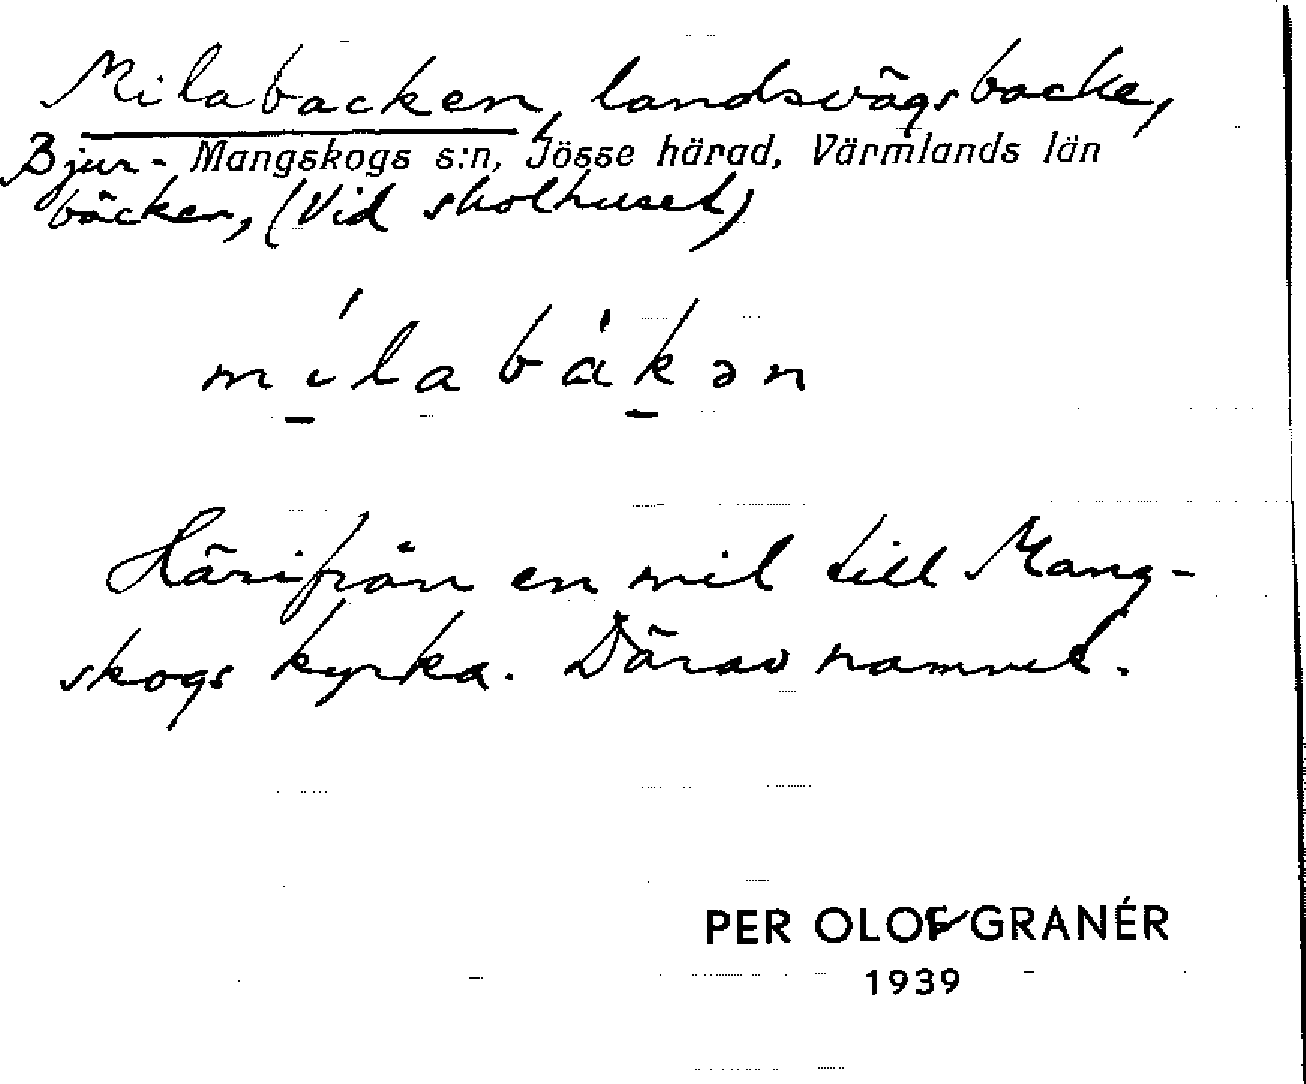 Milabacken, landsvägsbacke,
Bjur- Mangskogs s:n, Jösse härad, Värmlands län
bäcken, (Vid skolhuset)
mílabàkən
Härifrån en mil till Mang-
skogs kyrka. Därav namnet.
PER OLOF GRANÉR
1939